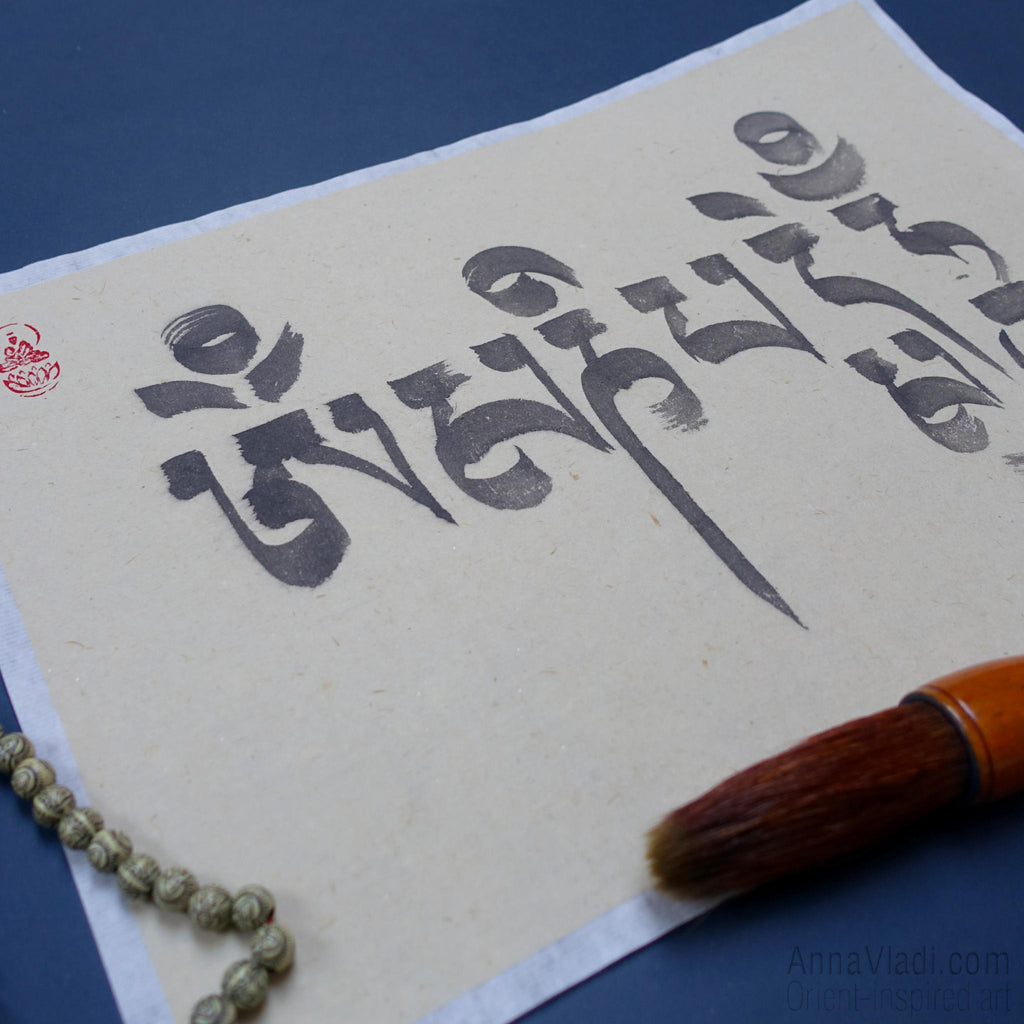 ཨོཾ་མ་ཎི་པདྨེ
AnnaVladi.com
Orient-inspired art